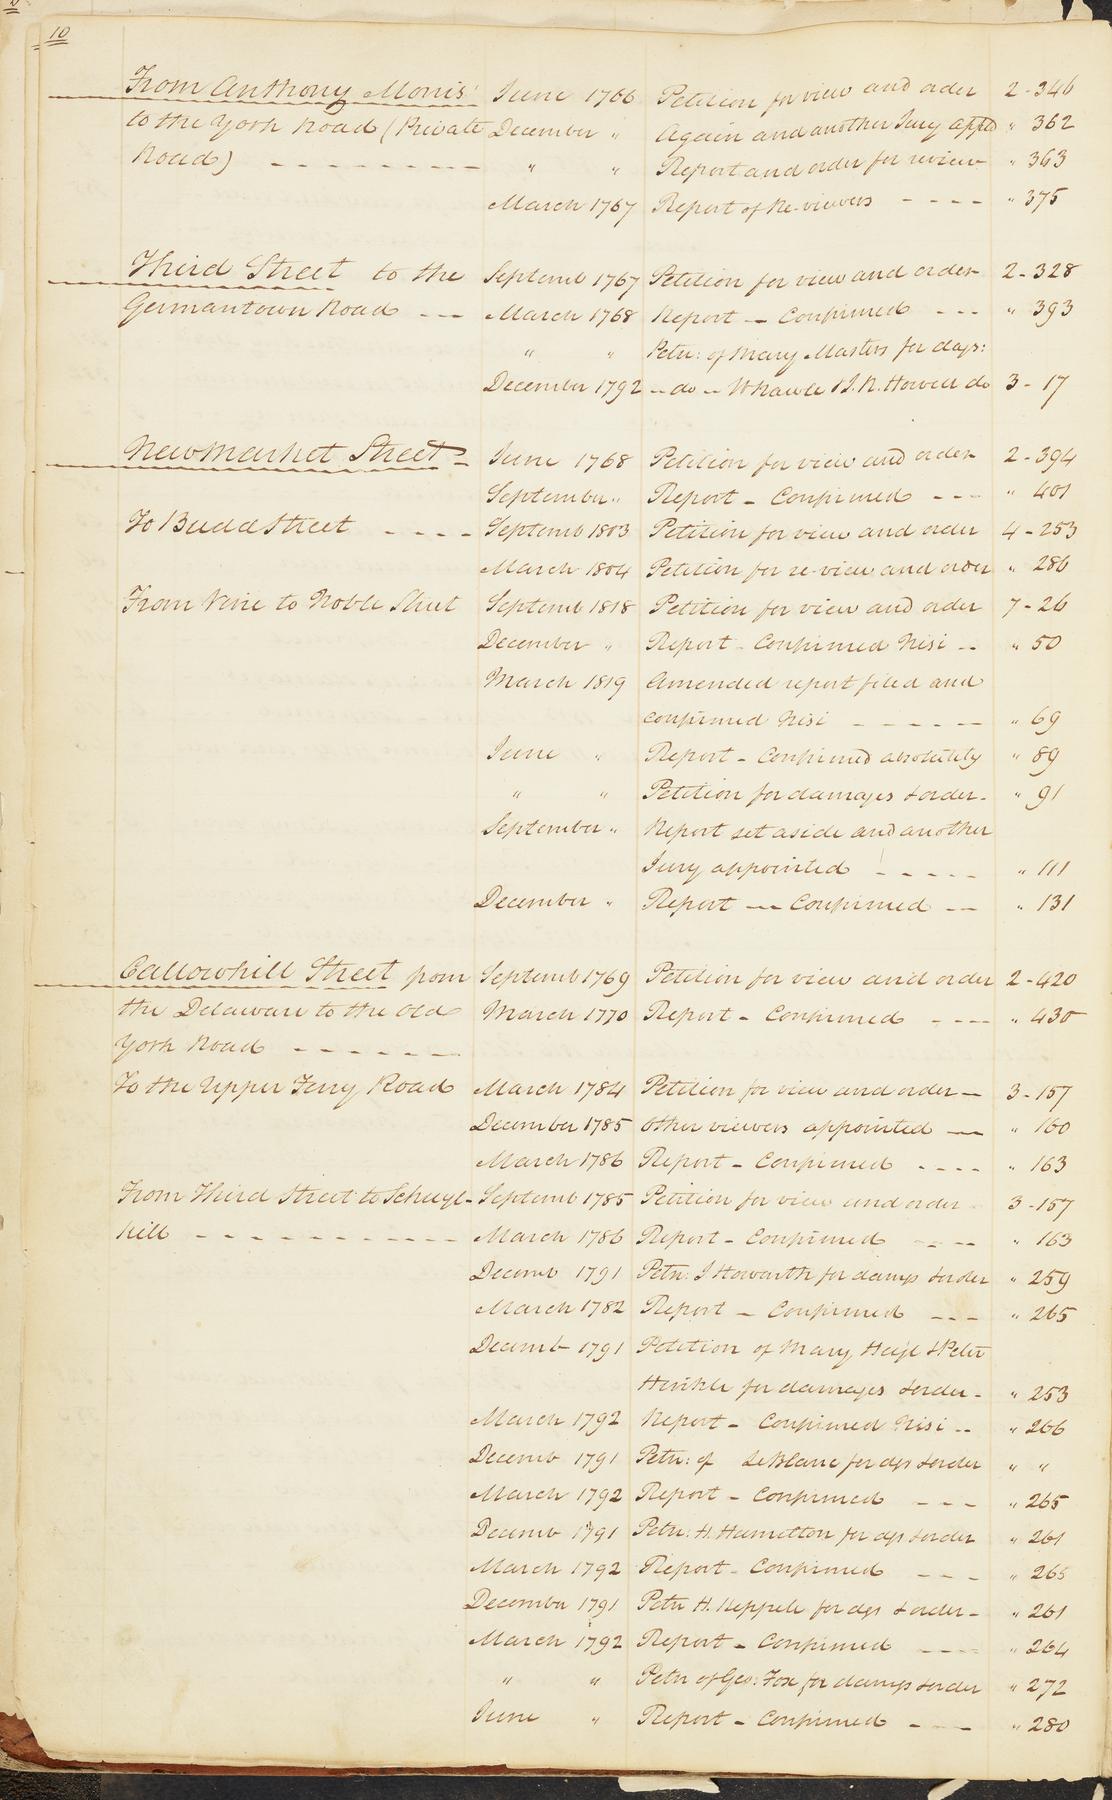 10
From Anthony Morris' June 1766 Petition for view and order 2-346
to the York Road (Private December " Again and another Jury appd " 362
Road) - - - - - - - - - " " Report and order for review " 363
March 1767 Report of Re-viewers - - - - " 375
Third Street to the Septemb 1767 Petition for view and order 2-328
Germantown Road - - - March 1768 Report - Confirmed - - - " 393
" " Petn: of Mary Masters for dags:
December 1792 - do - W Rawle & J. R. Howell do 3-17
Newmarket Street - June 1768 Petition for view and order 2-394
September " Report - Confirmed - - - " 401
To Budd Street - - - - Septemb 1803 Petition for view and order 4-253
March 1804 Petition for re-view and order " 286
From Vine to Noble Street Septemb 1818 Petition for view and order 7-26
December " Report - Confirmed Nisi - - " 50
March 1819 Amended report filed and
confirmed Nisi - - - - - - " 69
June " Report - Confirmed absolutely " 89
" " Petition for damages & order - " 91
September " Report set aside and another
Jury appointed - - - - - " 111
December " Report - Confirmed - - " 131
Callowhill Street from Septemb 1769 Petition for view and order 2-420
the Delaware to the Old March 1770 Report - Confirmed - - - - " 430
York Road - - - - - - -
To the Upper Ferry Road March 1784 Petition for view and order - 3-157
December 1785 Other viewers appointed - " 160
March 1786 Report - Confirmed - - - - " 163
From Third Street to Schuyl- Septemb 1785 Petition for view and order 3-157
kill - - - - - - - - - - - March 1786 Report - Confirmed - - - " 163
Decemb 1791 Petn: J Howarth for damgs & order " 259
March 1782 Report - Confirmed - - - " 265
Decemb 1791 Petition of Mary & Peter
Hinkle for damages & order - " 253
March 1792 Report - Confirmed Nisi - - " 266
Decemb 1791 Petn: of LeBlanc for dgs & order " "
March 1792 Report - Confirmed - - - " 265
Decemb 1791 Petn: H. Hamilton for dgs & order " 261
March 1792 Report - Confirmed - - - " 265
December 1791 Petn H. Keppele for dgs & order - " 261
March 1792 Report - Confirmed - - - " 264
" " Petn of Geo: Fox for damgs & order " 272
June " Report - Confirmed - - - " 280